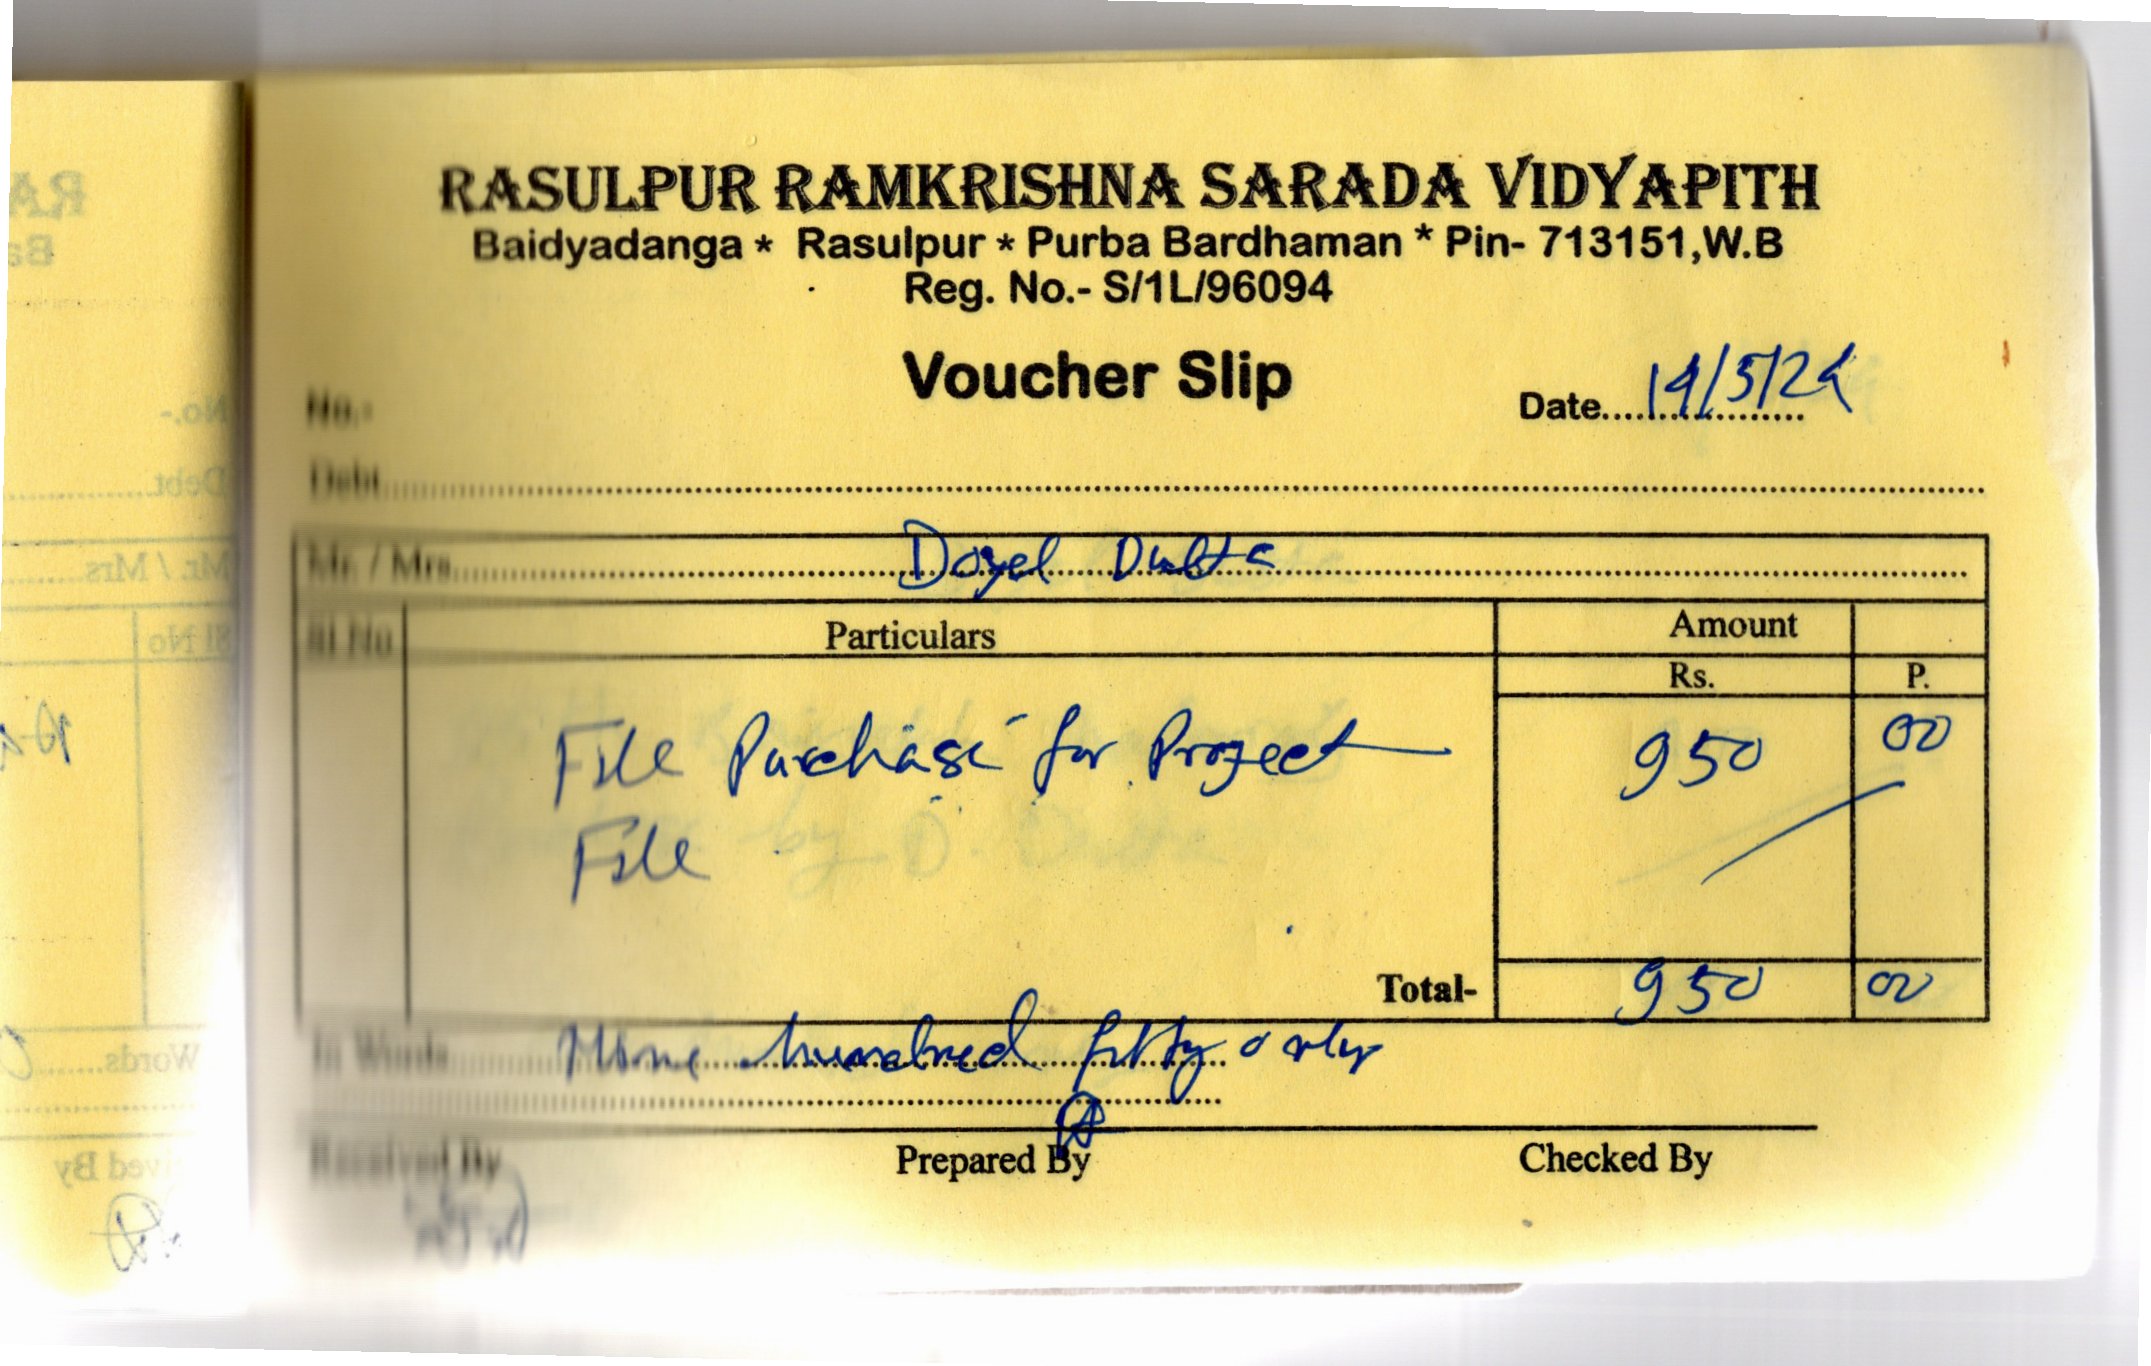 RASULPUR RAMKRISHNA SARADA VIDYAPITH
Baidyadanga * Rasulpur * Purba Bardhaman * Pin- 713151,W.B
Reg. No.- S/1L/96094
Voucher Slip
No.- Date 14/5/24
Debt
Mr. / Mrs Doyel Dutta
Sl No Particulars Amount
Rs. P.
File Purchase for Project 950 00
File
Total- 950 00
In Words Nine hundred fifty only
Received By Prepared By Checked By